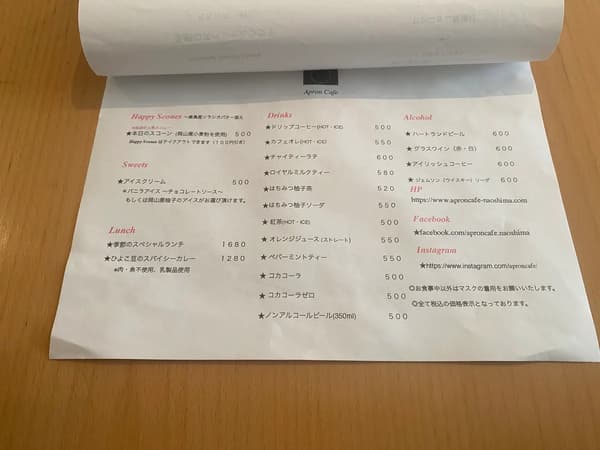 Apron Cafe
Happy Scones ～直島産シラシオバター添え
★本日のスコーン（岡山産小麦粉を使用) 500
Happy Scones はテイクアウトできます（100円引き）
Sweets
★アイスクリーム 500
＊バニラアイス 〜チョコレートソース〜
もしくは岡山産柚子のアイスがお選び頂けます。
Lunch
★季節のスペシャルランチ 1680
★ひよこ豆のスパイシーカレー 1280
※肉・魚不使用、乳製品使用
Drinks
★ドリップコーヒー(HOT・ICE) 500
★カフェオレ(HOT・ICE) 550
★チャイティーラテ 600
★ロイヤルミルクティー 580
★はちみつ柚子茶 520
★はちみつ柚子ソーダ 550
★紅茶(HOT・ICE) 500
★オレンジジュース(ストレート) 550
★ペパーミントティー 550
★コカコーラ 500
★コカコーラゼロ 500
★ノンアルコールビール(350ml) 500
Alcohol
★ハートランドビール 600
★グラスワイン（赤・白） 600
★アイリッシュコーヒー 600
★ジェムソン（ウイスキー）ソーダ 600
HP
https://www.aproncafe-naoshima.com
Facebook
★facebook.com/aproncafe.naoshima
Instagram
★https://www.instagram.com/aproncafe/
◎お食事中以外はマスクの着用をお願いいたします。
◎全て税込の価格表示となっております。